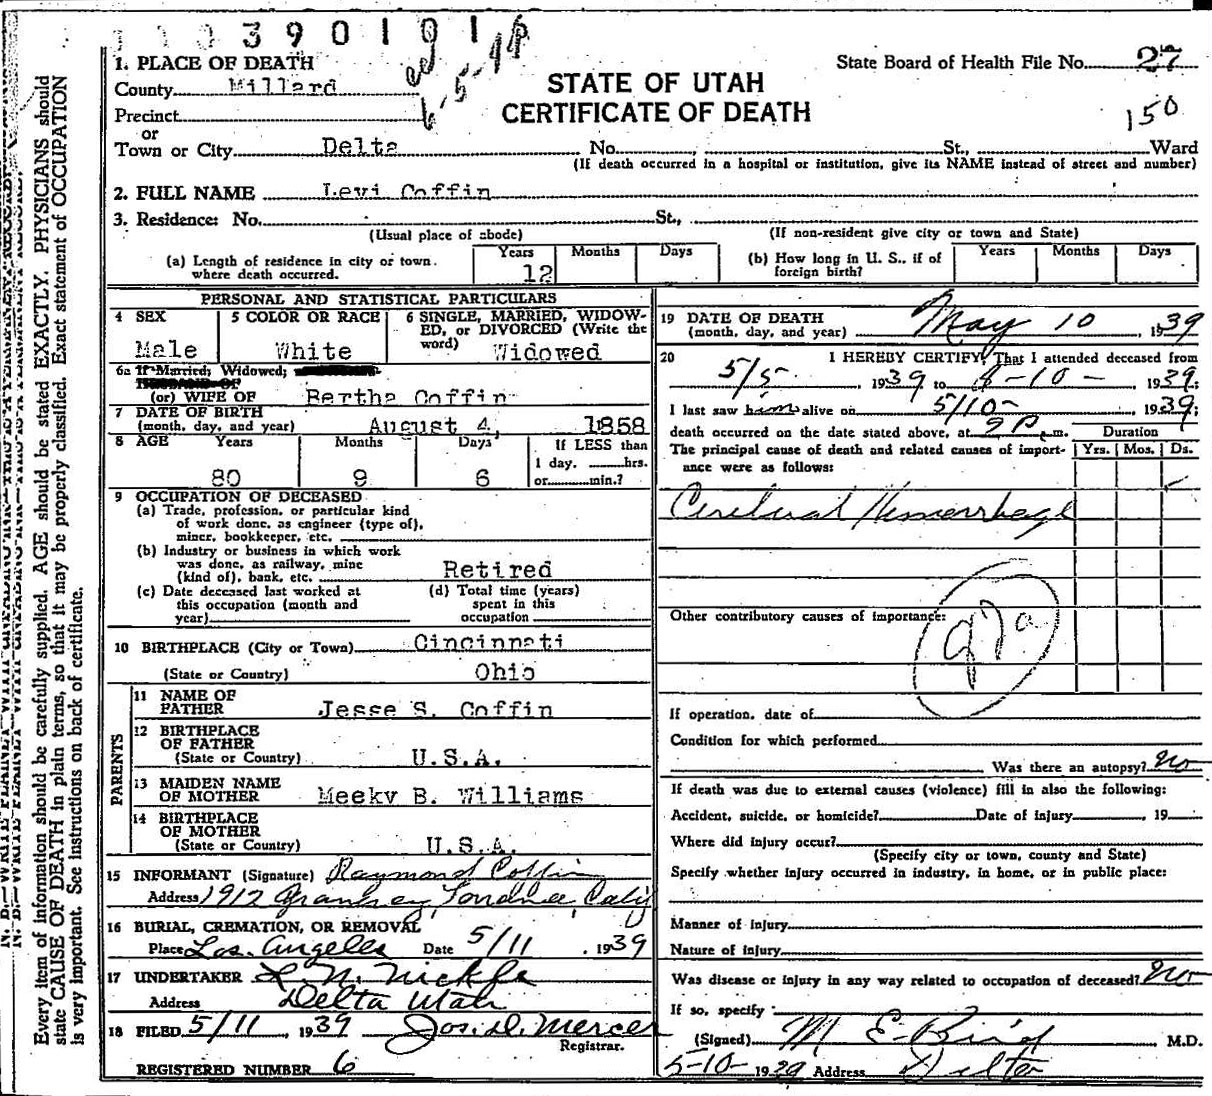 390101
State Board of Health File No. 27
150
STATE OF UTAH
CERTIFICATE OF DEATH
1. PLACE OF DEATH
County Millard
Precinct
or
Town or City Delta No. St., Ward
(If death occurred in a hospital or institution, give its NAME instead of street and number)
2. FULL NAME Levi Coffin
3. Residence: No. St.,
(Usual place of abode) (If non-resident give city or town and State)
(a) Length of residence in city or town where death occurred. Years 12 Months Days
(b) How long in U. S., if of foreign birth? Years Months Days
PERSONAL AND STATISTICAL PARTICULARS
4 SEX Male
5 COLOR OR RACE White
6 SINGLE, MARRIED, WIDOWED, or DIVORCED (Write the word) Widowed
6a If Married, Widowed,
HUSBAND OF
(or) WIFE OF Bertha Coffin
7 DATE OF BIRTH
(month, day, and year) August 4, 1858
8 AGE Years 80 Months 9 Days 6
If LESS than
1 day, hrs.
or min.?
9 OCCUPATION OF DECEASED
(a) Trade, profession, or particular kind
of work done, as engineer (type of),
miner, bookkeeper, etc.
(b) Industry or business in which work
was done, as railway, mine
(kind of), bank, etc. Retired
(c) Date deceased last worked at
this occupation (month and
year)
(d) Total time (years)
spent in this
occupation
10 BIRTHPLACE (City or Town) Cincinnati
(State or Country) Ohio
PARENTS
11 NAME OF
FATHER Jesse S. Coffin
12 BIRTHPLACE
OF FATHER
(State or Country) U.S.A.
13 MAIDEN NAME
OF MOTHER Meeky B. Williams
14 BIRTHPLACE
OF MOTHER
(State or Country) U.S.A.
15 INFORMANT (Signature) Raymond Coffin
Address 1912 Calif
16 BURIAL, CREMATION, OR REMOVAL
Place Los Angelles Date 5/11, 1939
17 UNDERTAKER L. N. Nickle
Address Delta Utah
18 FILED 5/11, 1939 Jos. D. Mercer
Registrar.
REGISTERED NUMBER 6
19 DATE OF DEATH
(month, day, and year) May 10 1939
20 I HEREBY CERTIFY, That I attended deceased from
5/5 1939 to -10- , 1939;
I last saw him alive on 5/10- , 1939;
death occurred on the date stated above, at 9 P.m. Duration
The principal cause of death and related causes of import- Yrs. Mos. Ds.
ance were as follows:
Cerebral Hemorrhage
Other contributory causes of importance:
97a
If operation, date of
Condition for which performed
Was there an autopsy? no
If death was due to external causes (violence) fill in also the following:
Accident, suicide, or homicide? Date of injury , 19
Where did injury occur?
(Specify city or town, county and State)
Specify whether injury occurred in industry, in home, or in public place:
Manner of injury
Nature of injury
Was disease or injury in any way related to occupation of deceased? no
If so, specify
(Signed) M E Bird M.D.
5-10- 1939 Address Delta
Every item of information should be carefully supplied. AGE should be stated EXACTLY. PHYSICIANS should
state CAUSE OF DEATH in plain terms, so that it may be properly classified. Exact statement of OCCUPATION
is very important. See instructions on back of certificate.